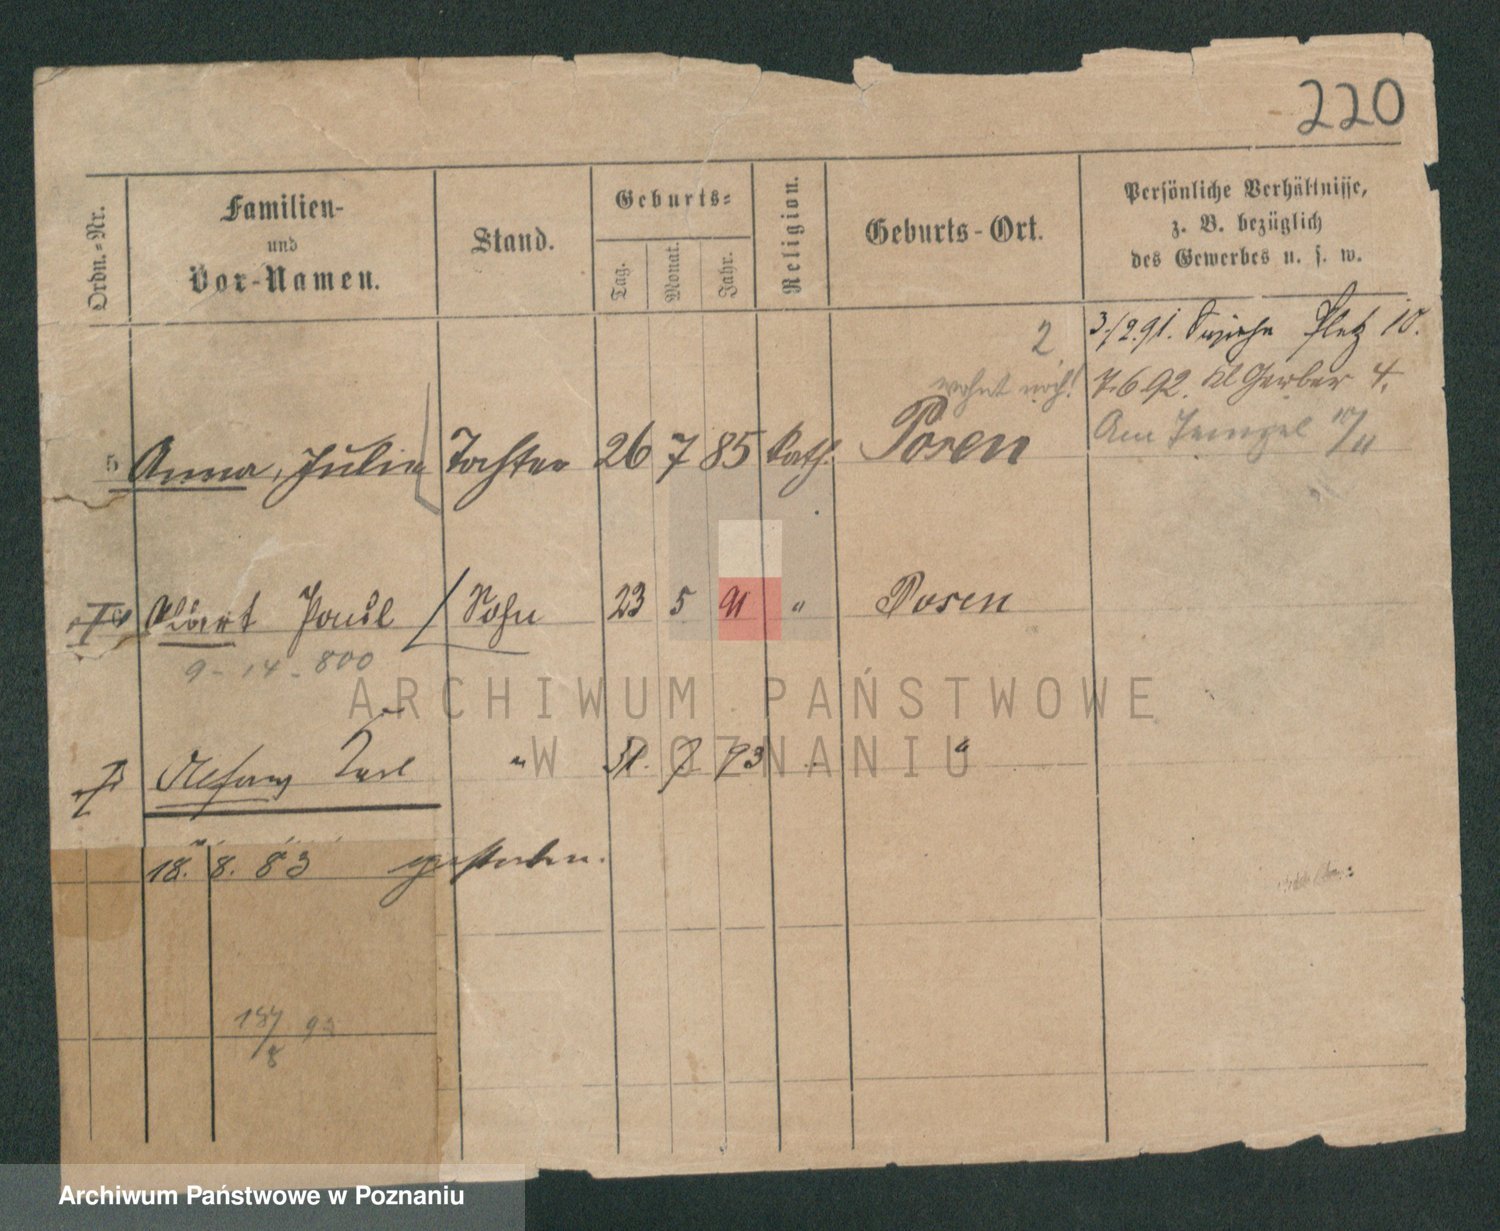 220
Ordn.-Nr.
Familien-
und
Vor-Namen.
Stand.
Geburts-
Tag.
Monat.
Jahr.
Religion.
Geburts-Ort.
Persönliche Verhältnisse,
z. B. bezüglich
des Gewerbes u. s. w.
2
wohnt noch!
7.6 92. Kl Gerber 4.
5 Anna, Julie Tochter 26 7 85 kath. Posen
Paul Sohn 23 5 91 " Posen
9 - 14 - 800
Karl " 31. 7 93 "
18. 8. 83 gestorben.
ARCHIWUM PAŃSTWOWE
W POZNANIU
Archiwum Państwowe w Poznaniu